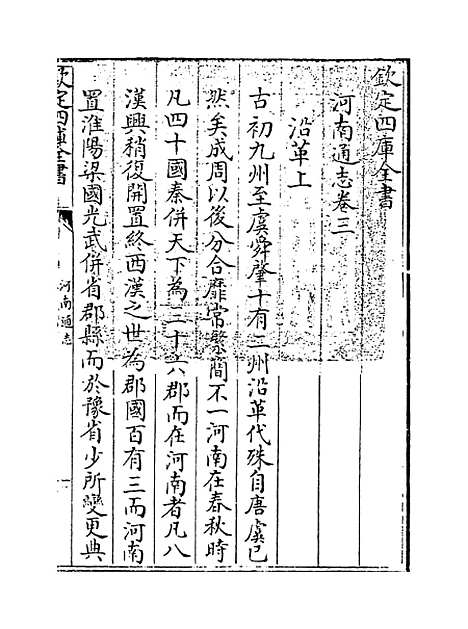 欽定四庫全書
河南通志卷三
沿革上
古初九州至虞舜肇十有二州沿革代殊自唐虞已
然矣成周以後分合靡常繁簡不一河南在春秋時
凡四十國秦併天下為三十六郡而在河南者凡八
漢興稍復開置終西漢之世為郡國百有三而河南
置淮陽梁國光武併省郡縣而於豫省少所變更典
欽定四庫全書
河南通志
一